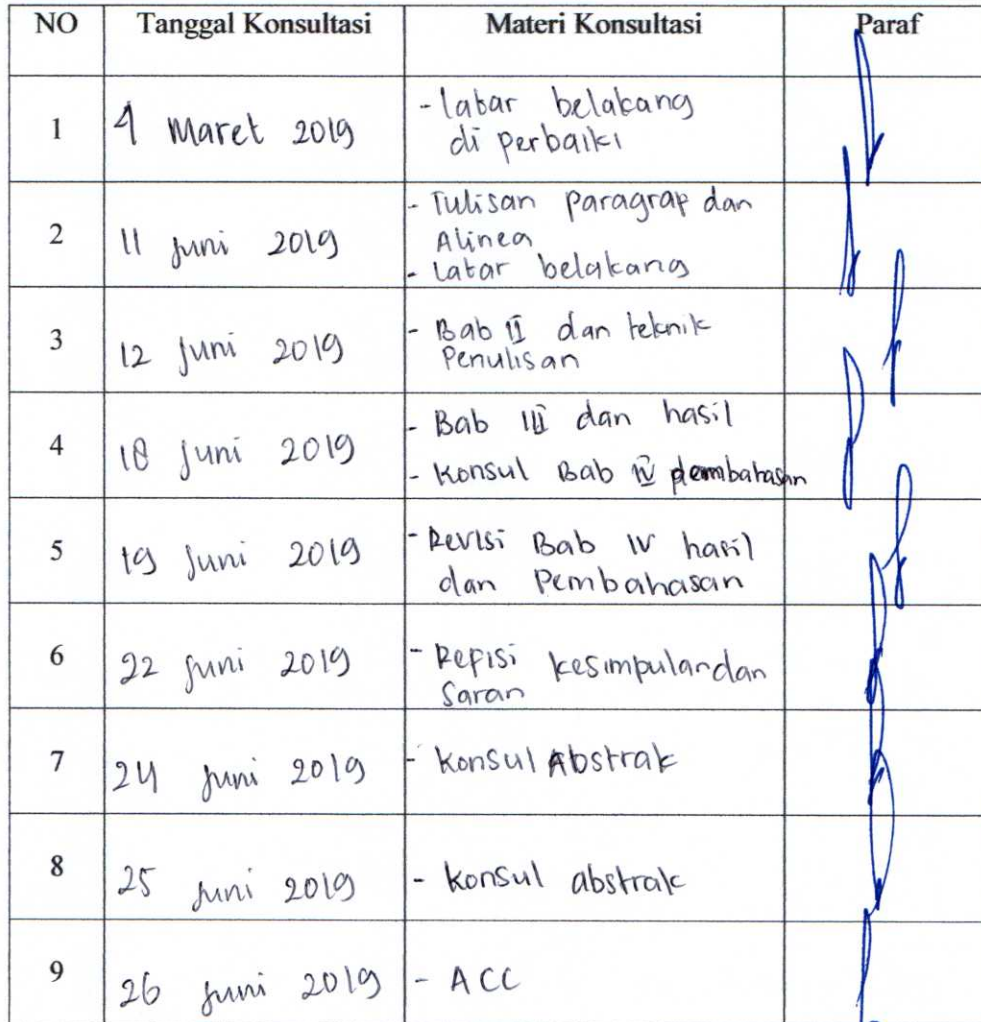 NO Tanggal Konsultasi Materi Konsultasi Paraf
1 4 Maret 2019 - latar belakang
di perbaiki
2 11 Juni 2019 - Tulisan paragrap dan
Alinea
- Latar belakang
3 12 Juni 2019 - Bab II dan teknik
Penulisan
4 18 Juni 2019 - Bab III dan hasil
- Konsul Bab IV pembahasan
5 19 Juni 2019 - Revisi Bab IV hasil
dan Pembahasan
6 22 Juni 2019 - Repisi kesimpulan dan
Saran
7 24 Juni 2019 - Konsul Abstrak
8 25 Juni 2019 - Konsul abstrak
9 26 Juni 2019 - ACC